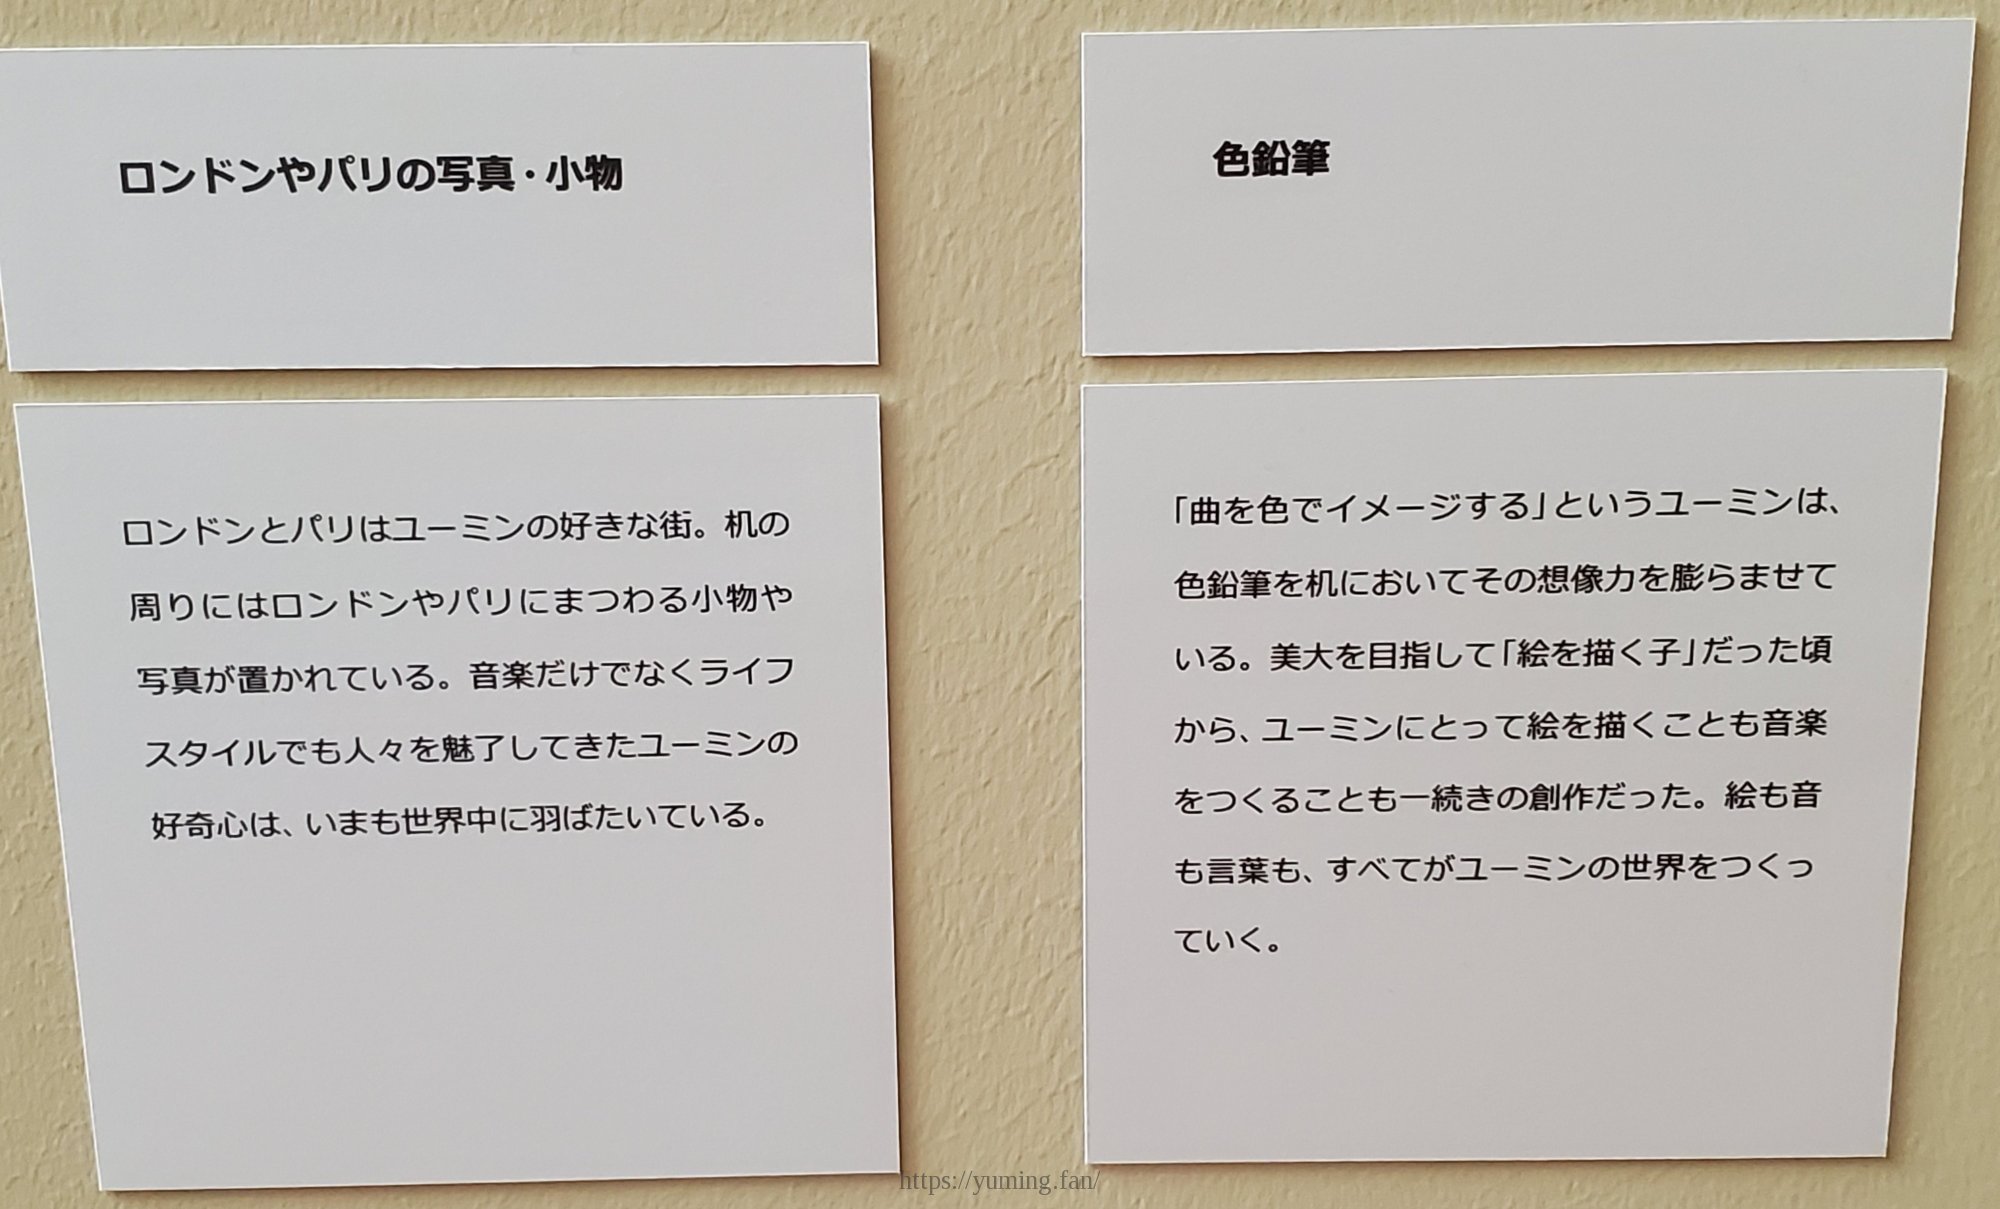 ロンドンやパリの写真・小物
ロンドンとパリはユーミンの好きな街。机の
周りにはロンドンやパリにまつわる小物や
写真が置かれている。音楽だけでなくライフ
スタイルでも人々を魅了してきたユーミンの
好奇心は、いまも世界中に羽ばたいている。
色鉛筆
「曲を色でイメージする」というユーミンは、
色鉛筆を机においてその想像力を膨らませて
いる。美大を目指して「絵を描く子」だった頃
から、ユーミンにとって絵を描くことも音楽
をつくることも一続きの創作だった。絵も音
も言葉も、すべてがユーミンの世界をつくっ
ていく。
https://yuming.fan/